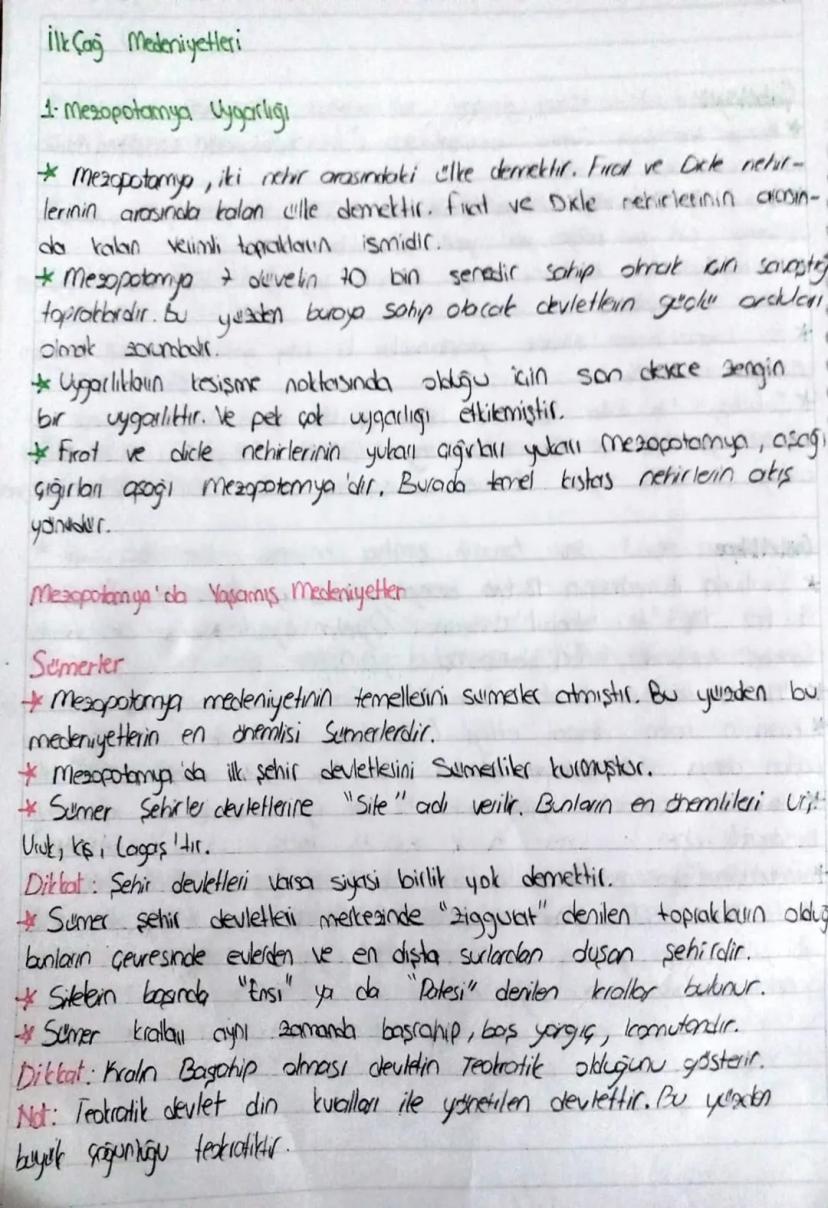 İlk Çağ Medeniyetleri
1- Mezopotamya Uygarlığı
* Mezopotamya, iki nehir arasındaki ülke demektir. Fırat ve Dicle nehir-
lerinin arasında kalan ülke demektir. Fırat ve Dicle nehirlerinin arasın-
da kalan verimli toprakların ismidir.
* Mezopotamya 7 devletin 10 bin senedir sahip olmak için savaştığ
topraklardır. Bu yüzden buraya sahip olacak devletlerin güçlü orduları
olmak zorundadır.
* Uygarlıkların kesişme noktasında olduğu için son derece zengin
bir uygarlıktır. Ve pek çok uygarlığı etkilemiştir.
* Fırat ve dicle nehirlerinin yukarı çığırları yukarı mezopotamya, aşağı
çığırları aşağı mezopotamya'dır. Burada temel kıstas nehirlerin akış
yönüdür.
Mezopotamya'da Yaşamış Medeniyetler
Sümerler
* Mezopotamya medeniyetinin temellerini sümerler atmıştır. Bu yüzden bu
medeniyetlerin en önemlisi Sümerlerdir.
* Mezopotamya'da ilk şehir devletlerini Sümerliler kurmuştur.
* Sümer Şehirler devletlerine "Site" adı verilir. Bunların en önemlileri Ur,
Uruk, Kiş, Lagaş'tır.
Dikkat: Şehir devletleri varsa siyasi birlik yok demektir.
* Sümer şehir devletleri merkezinde "Zigguat" denilen toprakların olduğ
bunların çevresinde evlerden ve en dışta surlardan duşan şehirdir.
* Sitelerin başında "Ensi" ya da "Patesi" denilen krallar bulunur.
* Sümer kralları aynı zamanda başrahip, baş yargıç, komutandır.
Dikkat: Kralın Başrahip olması devletin Teokratik olduğunu gösterir.
Not: Teokratik devlet din kuralları ile yönetilen devlettir. Bu yüzden
büyük çoğunluğu teokratiktir.